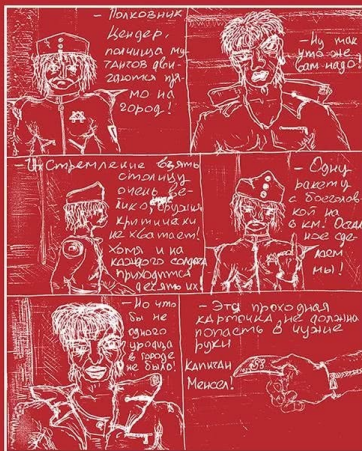 - Полковник
Цендер,
полчища му
тантов дви-
гаются пря-
мо на
город!
- Ну так
что же
вам надо!
- Их стремление взять
столицу
очень ве-
лико. Оружия
критически
не хватает!
хотя и на
каждого солдата
приходится
десять их
- Одну
ракету
с боеголов
кой на
км! Осталь
ное сде-
лаем
мы!
- Но что
бы не
одного
урода
в городе
не было!
- Эта проходная
карточка не должна
попасть в чужие
руки
капитан
Менсел!